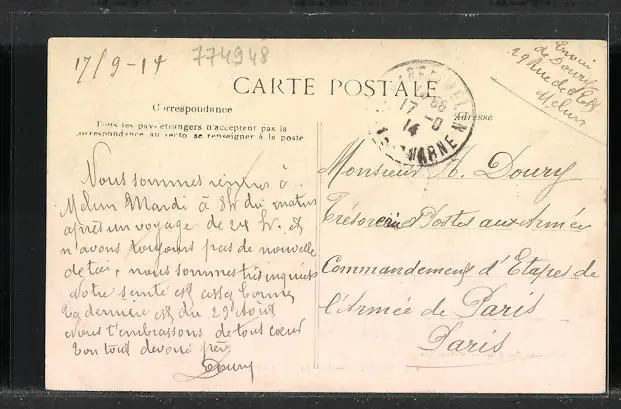 17/9-14
774948
CARTE POSTALE
Correspondance
Tous les pays étrangers n'acceptent pas la
correspondance au recto se renseigner à la poste
Adresse
Envoi
de Doury
29 Rue de
Melun
MELUN
17-9
14
MARNE
Nous sommes rentrés à
Melun Mardi à 8h du matin
après un voyage de 24 h. et
n'avons toujours pas de nouvelle
de toi, nous sommes très inquiets
Notre santé est assez bonne
ta dernière est du 29 Août
Nous t'embrassons de tout cœur
ton tout dévoué père
Doury
Monsieur H. Doury
Trésorerie & Postes aux Armée
Commandement d'Etapes de
l'Armée de Paris
Paris